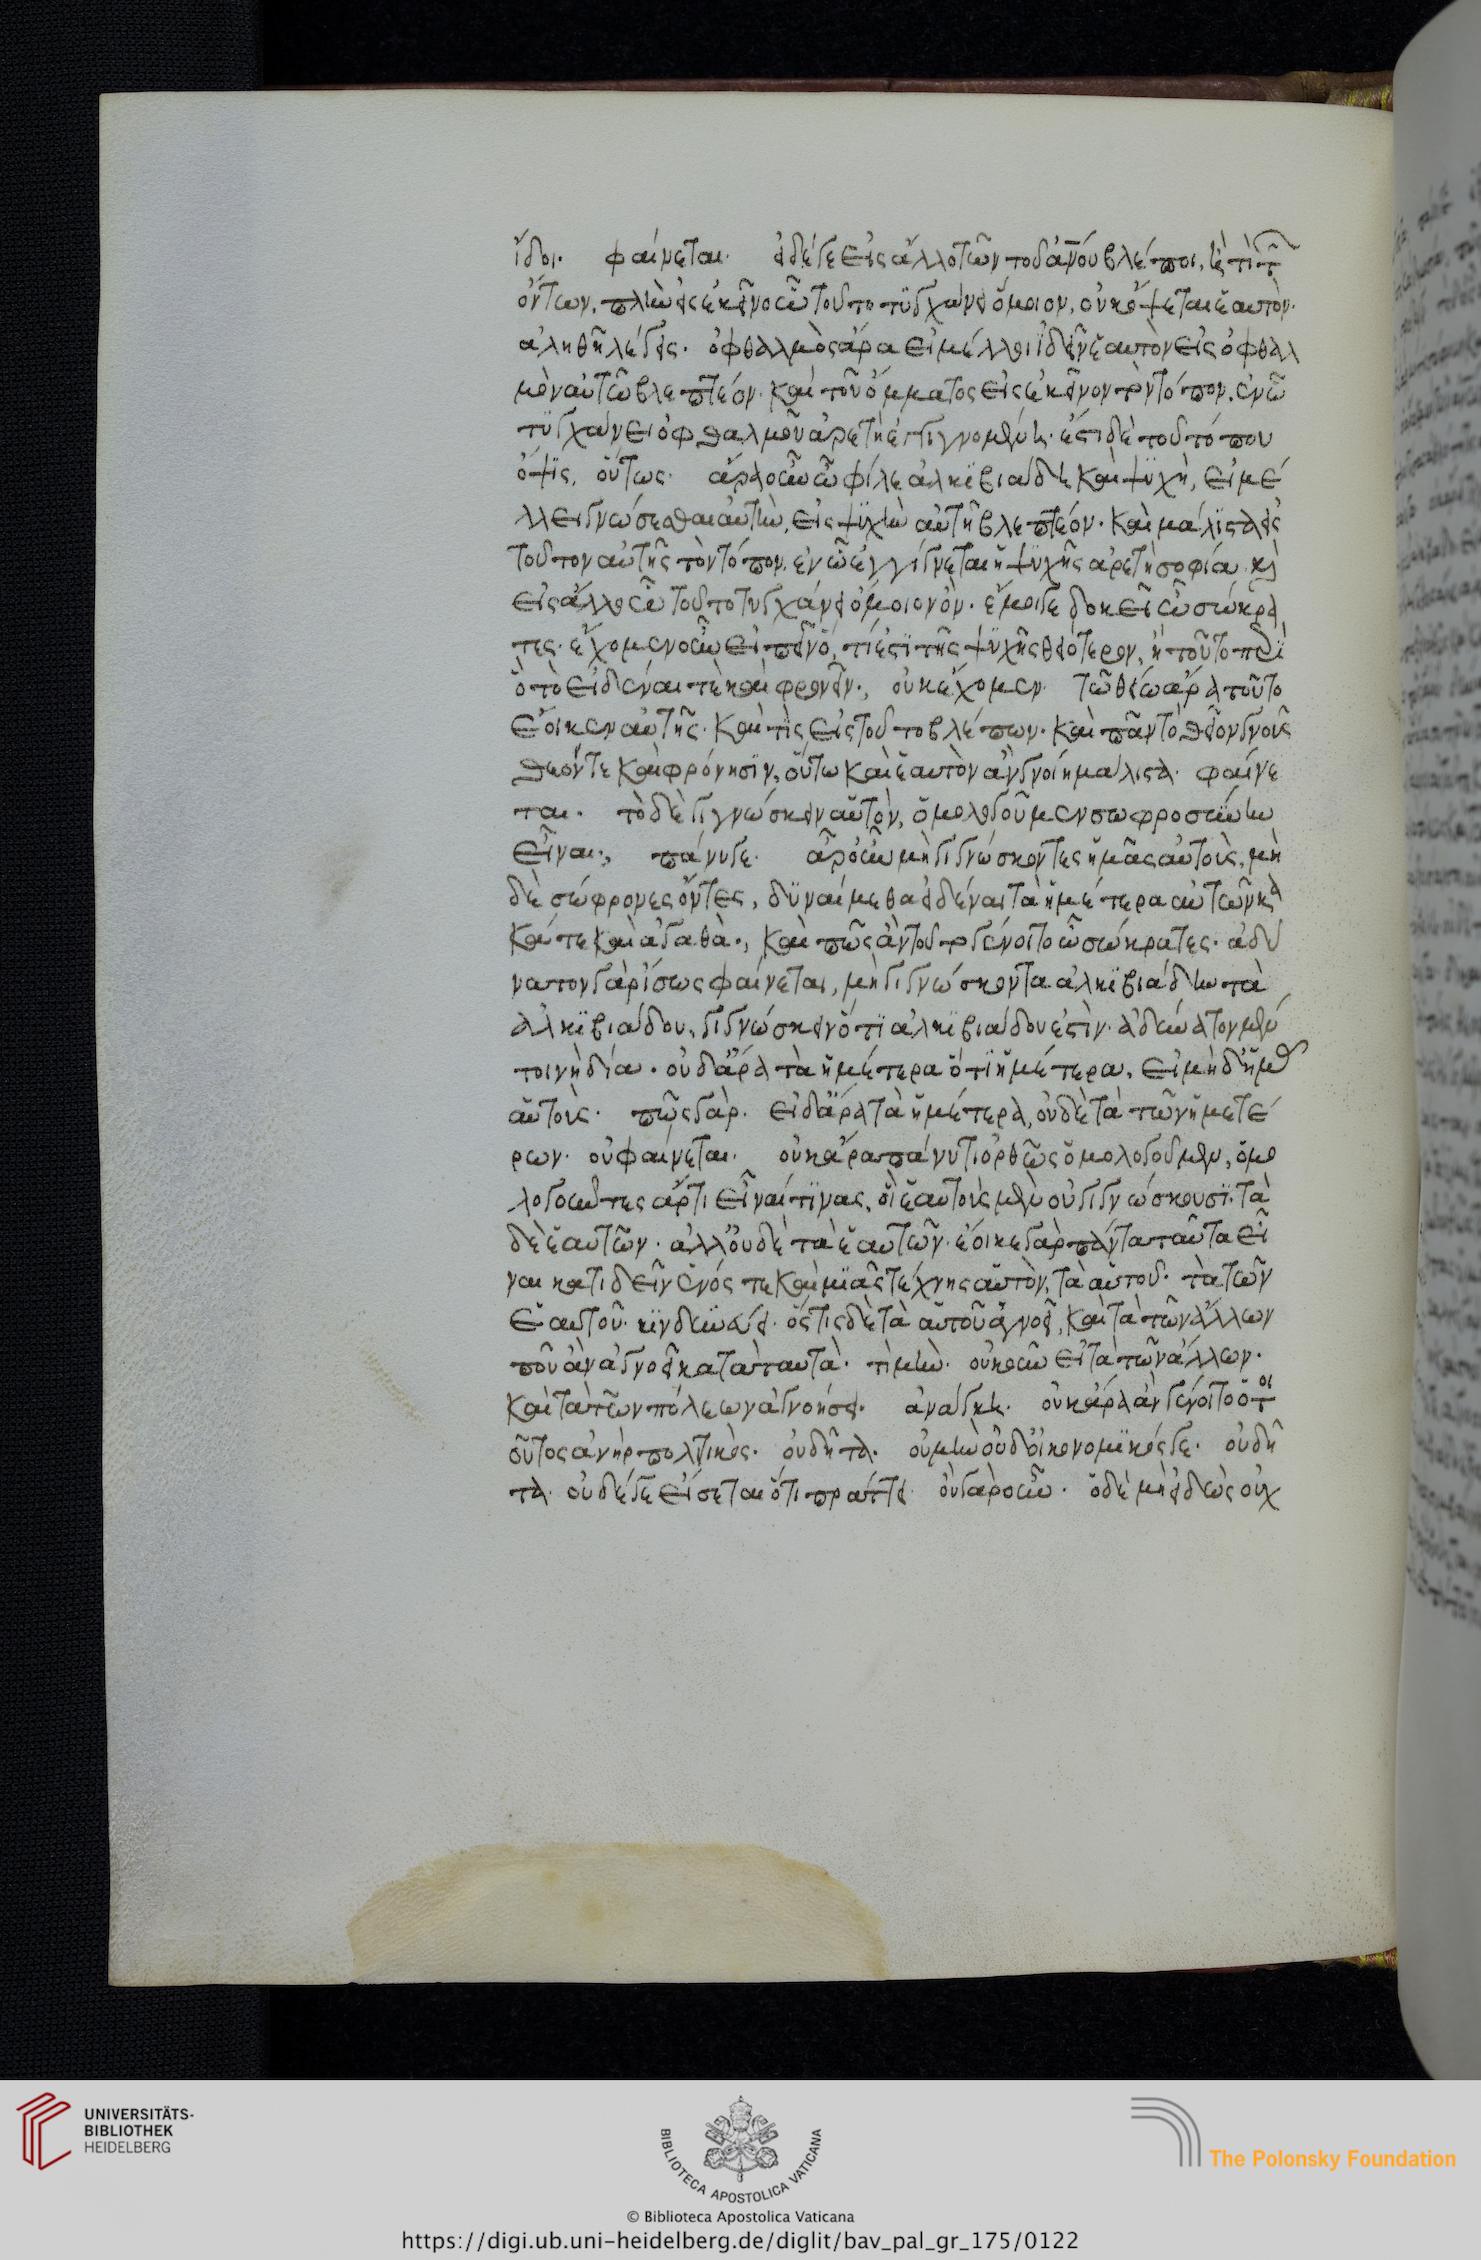 ἴδοι. φαίνεται. εἰ δέ γε εἰς ἄλλο τῶν τοῦ ἀνου βλέποι, ἢ τὶ τῶν
ὄντων, πλὴν εἰς ἐκεῖνο ὦ τοῦτο τυγχάνει ὅμοιον, οὐκ ὄψεται ἑαυτὸν.
ἀληθῆ λέγεις. ὀφθαλμὸς ἄρα εἰ μέλλει ἰδεῖν ἑαυτὸν εἰς ὀφθαλ
μὸν αὐτῶ βλεπτέον. καὶ τοῦ ὄμματος εἰς ἐκεῖνον τὸν τόπον, ἐν ὧ
τυγχάνει ὀφθαλμοῦ ἀρετὴ ἐγγιγνομένη. ἔστι δὲ τοῦτό που
ὄψις, οὕτως. ἆρ' οὖν ὦ φίλε ἀλκιβιάδη καὶ ψυχὴ, εἰ μέ
λλει γνώσεσθαι αὑτὴν, εἰς ψυχὴν αὐτῆ βλεπτέον. καὶ μάλιστα εἰς
τοῦτον αὐτῆς τὸν τόπον, ἐν ὧ ἐγγίγνεται ἡ ψυχῆς ἀρετὴ σοφία. καὶ
εἰς ἄλλο ὧ τοῦτο τυγχάνει ὅμοιον ὄν. ἔμοιγε δοκεῖ ὦ σώκρα
τες. ἔχομεν οὖν εἰπεῖν ὅ, τί ἐστι τῆς ψυχῆς θειότερον, ἢ τοῦτο περὶ
ὃ τὸ εἰδέναι τὲ καὶ φρονεῖν., οὐκ ἔχομεν. τῶ θείω ἄρα τοῦτο
ἔοικεν αὐτῆς. καὶ τὶς εἰς τοῦτο βλέπων. καὶ πᾶν τὸ θεῖον γνοὺς
θεόν τε καὶ φρόνησιν, οὕτω καὶ ἑαυτὸν ἂν γνοίη μάλιστα. φαίνε
ται. τὸ δὲ γιγνώσκειν αὑτὸν, ὁμολογοῦμεν σωφροσύνην
εἶναι., πάνυ γε. ἆρ' οὖν μὴ γιγνώσκοντες ἡμᾶς αὐτοὺς, μὴ
δὲ σώφρονες ὄντες, δυναίμεθα εἰδέναι τὰ ἡμέτερα αὐτῶν κα
κά τε καὶ ἀγαθὰ., καὶ πῶς ἂν τοῦτο γένοιτο ὦ σώκρατες. ἀδύ
νατον γὰρ ἴσως φαίνεται, μὴ γιγνώσκοντα ἀλκιβιάδην τὰ
ἀλκιβιάδου, γιγνώσκειν ὅτι ἀλκιβιάδου ἐστὶν. ἀδύνατον μέν
τοι νὴ δία. οὐδ' ἄρα τὰ ἡμέτερα ὅτι ἡμέτερα, εἰ μὴ δ' ἡμᾶς
αὐτοὺς. πῶς γὰρ. εἰ δ' ἄρα τὰ ἡμέτερα, οὐδὲ τὰ τῶν ἡμετέ
ρων. οὐ φαίνεται. οὐκ ἄρα πάνυ τι ὀρθῶς ὁμολογοῦμεν, ὁμο
λογοῦντες ἄρτι εἶναί τινας, οἳ ἑαυτοὺς μὲν οὐ γιγνώσκουσι. τὰ
δὲ ἑαυτῶν. ἀλλ' οὐδὲ τὰ ἑαυτῶν. ἔοικε γὰρ πάντα ταῦτα εἶ
ναι κατιδεῖν ἑνός τε καὶ μιᾶς τέχνης αὑτὸν, τὰ αὑτοῦ. τὰ τῶν
ἑαυτοῦ. κινδυνεύει. ὅστις δὲ τὰ αὑτοῦ ἀγνοεῖ, καὶ τὰ τῶν ἄλλων
που ἂν ἀγνοεῖ κατὰ ταυτὰ. τὶ μὴν. οὐκοῦν εἰ τὰ τῶν ἄλλων.
καὶ τὰ τῶν πόλεων ἀγνοήσει. ἀνάγκη. οὐκ ἄρα ἂν γένοιτο ὁ τοι
οῦτος ἀνὴρ πολιτικὸς. οὐ δῆτα. οὐ μὴν οὐδ' οἰκονομικός γε. οὐ δῆ
τα. οὐδέ γε εἴσεται ὅτι πράττει. οὐ γὰρ οὖν. ὁ δὲ μὴ εἰδὼς οὐχ
UNIVERSITÄTS-
BIBLIOTHEK
HEIDELBERG
BIBLIOTECA APOSTOLICA VATICANA
The Polonsky Foundation
© Biblioteca Apostolica Vaticana
https://digi.ub.uni-heidelberg.de/diglit/bav_pal_gr_175/0122